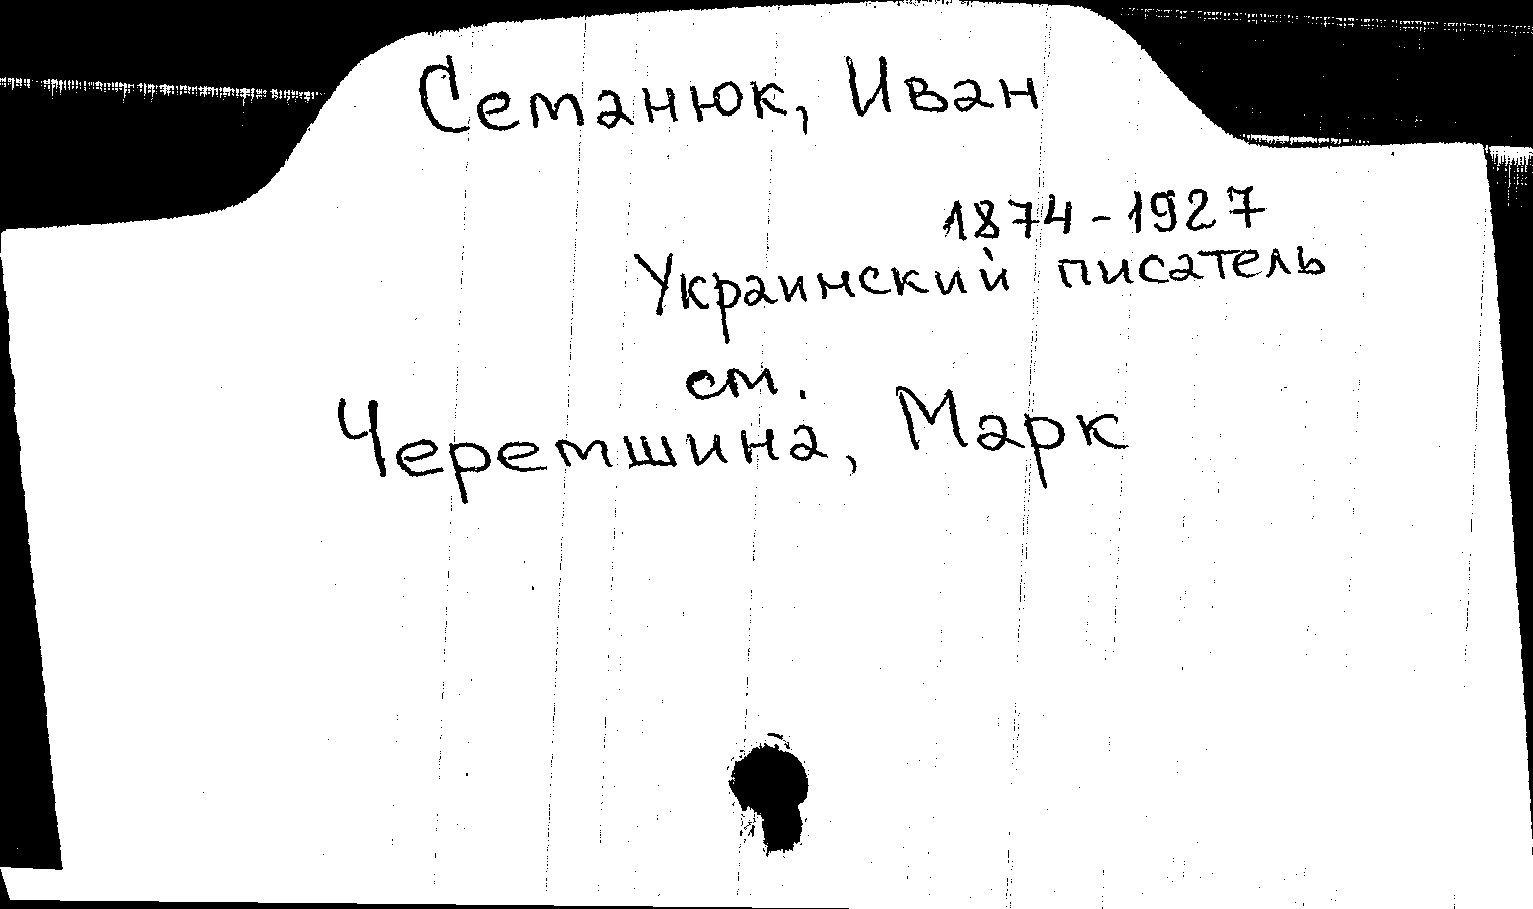 Семанюк, Иван
1874-1927
Украинский писатель
см.
Черемшина, Марк